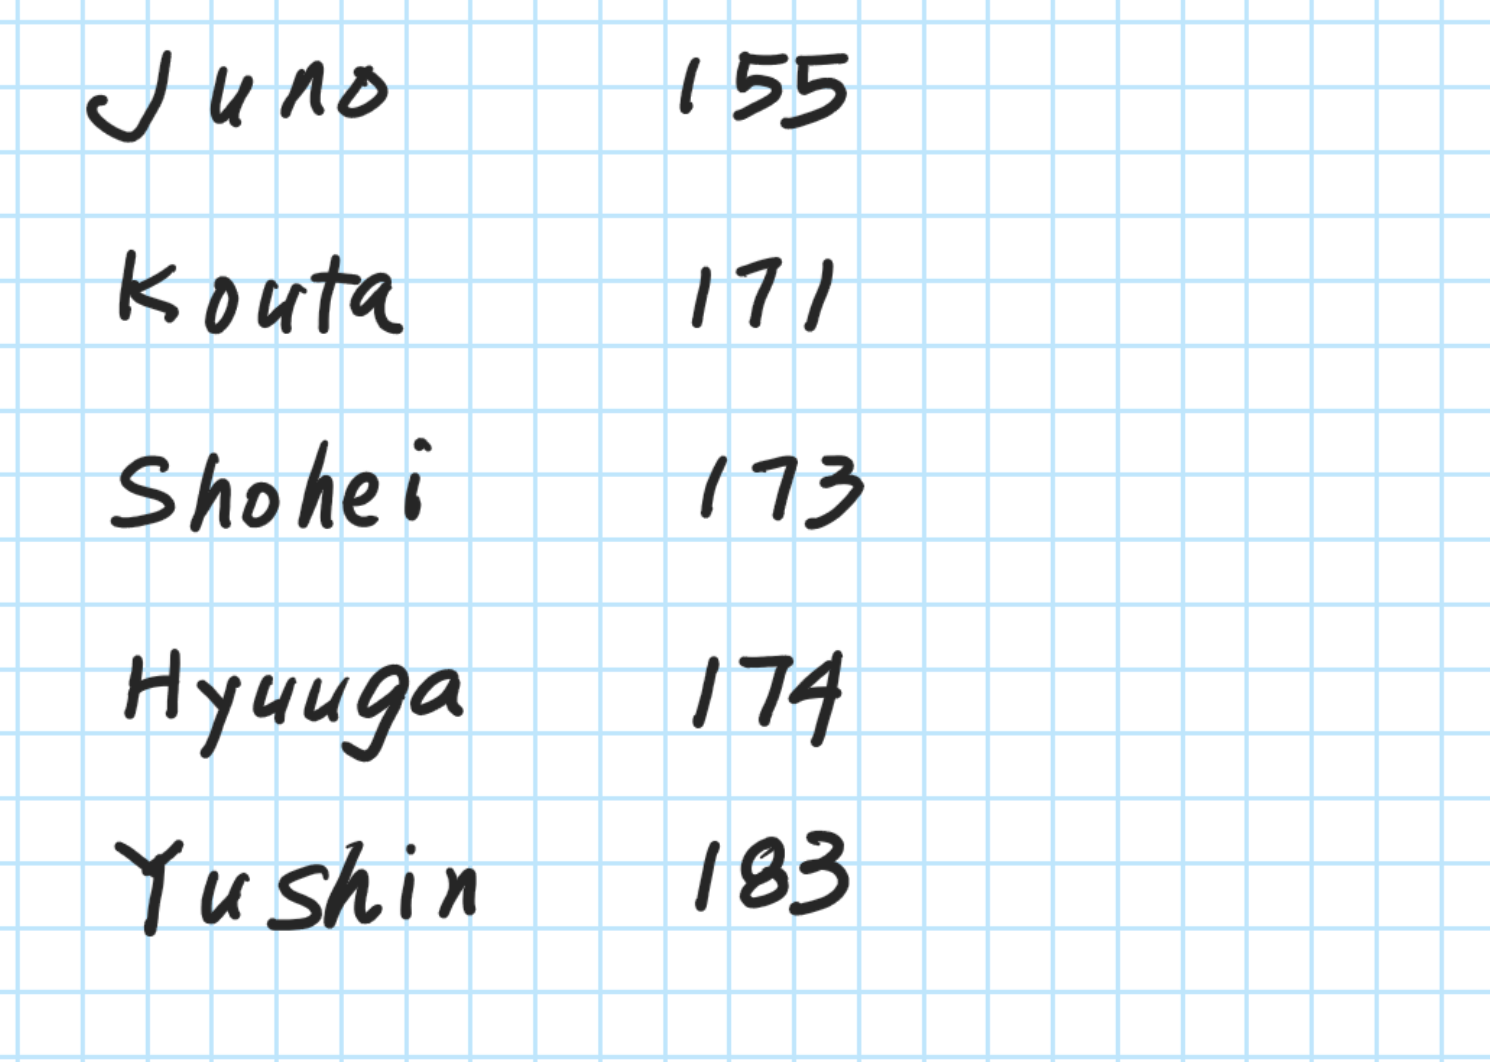 Juno 155
Kouta 171
Shohei 173
Hyuuga 174
Yushin 183